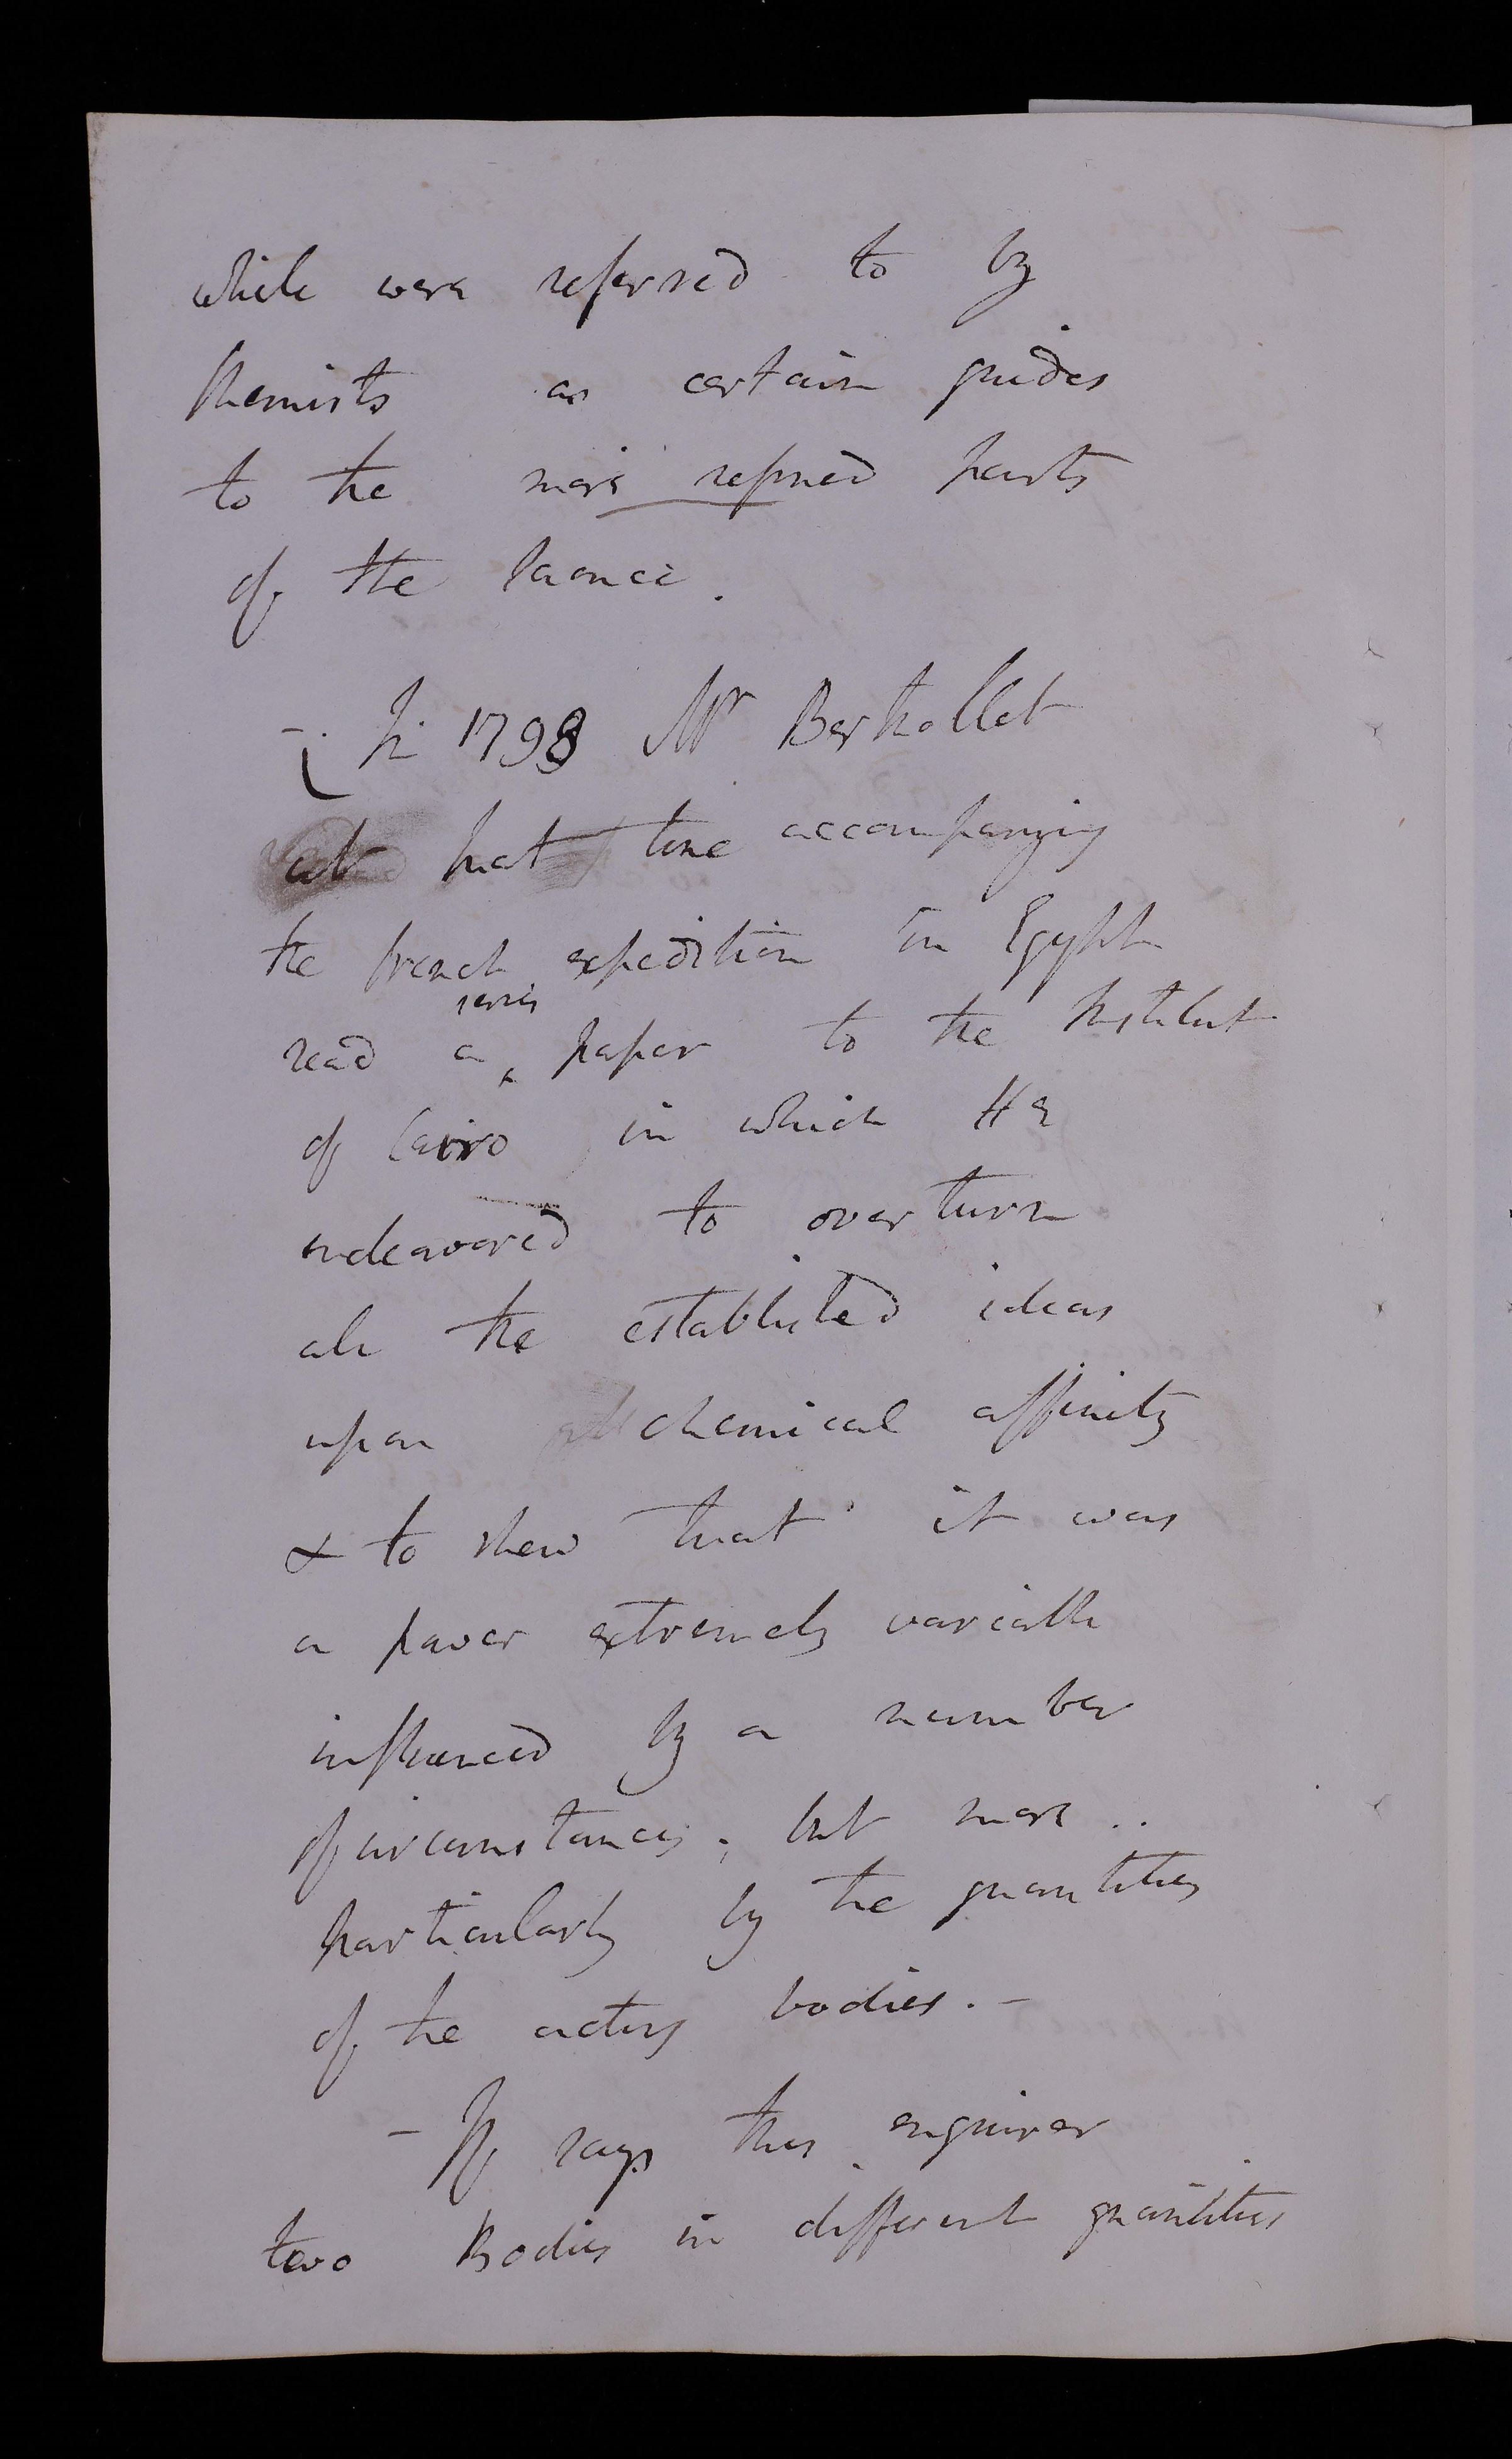 which were referred to by
Chemists as certain guides
to the more refined parts
of the Science.
- In 1798 Mr Berthollet
at that time accompanying
the French expedition in Egypt
read a series paper to the Institut
of Cairo in which He
endeavored to overturn
all the established ideas
upon chemical affinity
& to shew that it was
a power extremely variable
influenced by a number
of circumstances; but more
particularly by the quantities
of the acting bodies. -
- If says this enquirer
two Bodies in different quantities